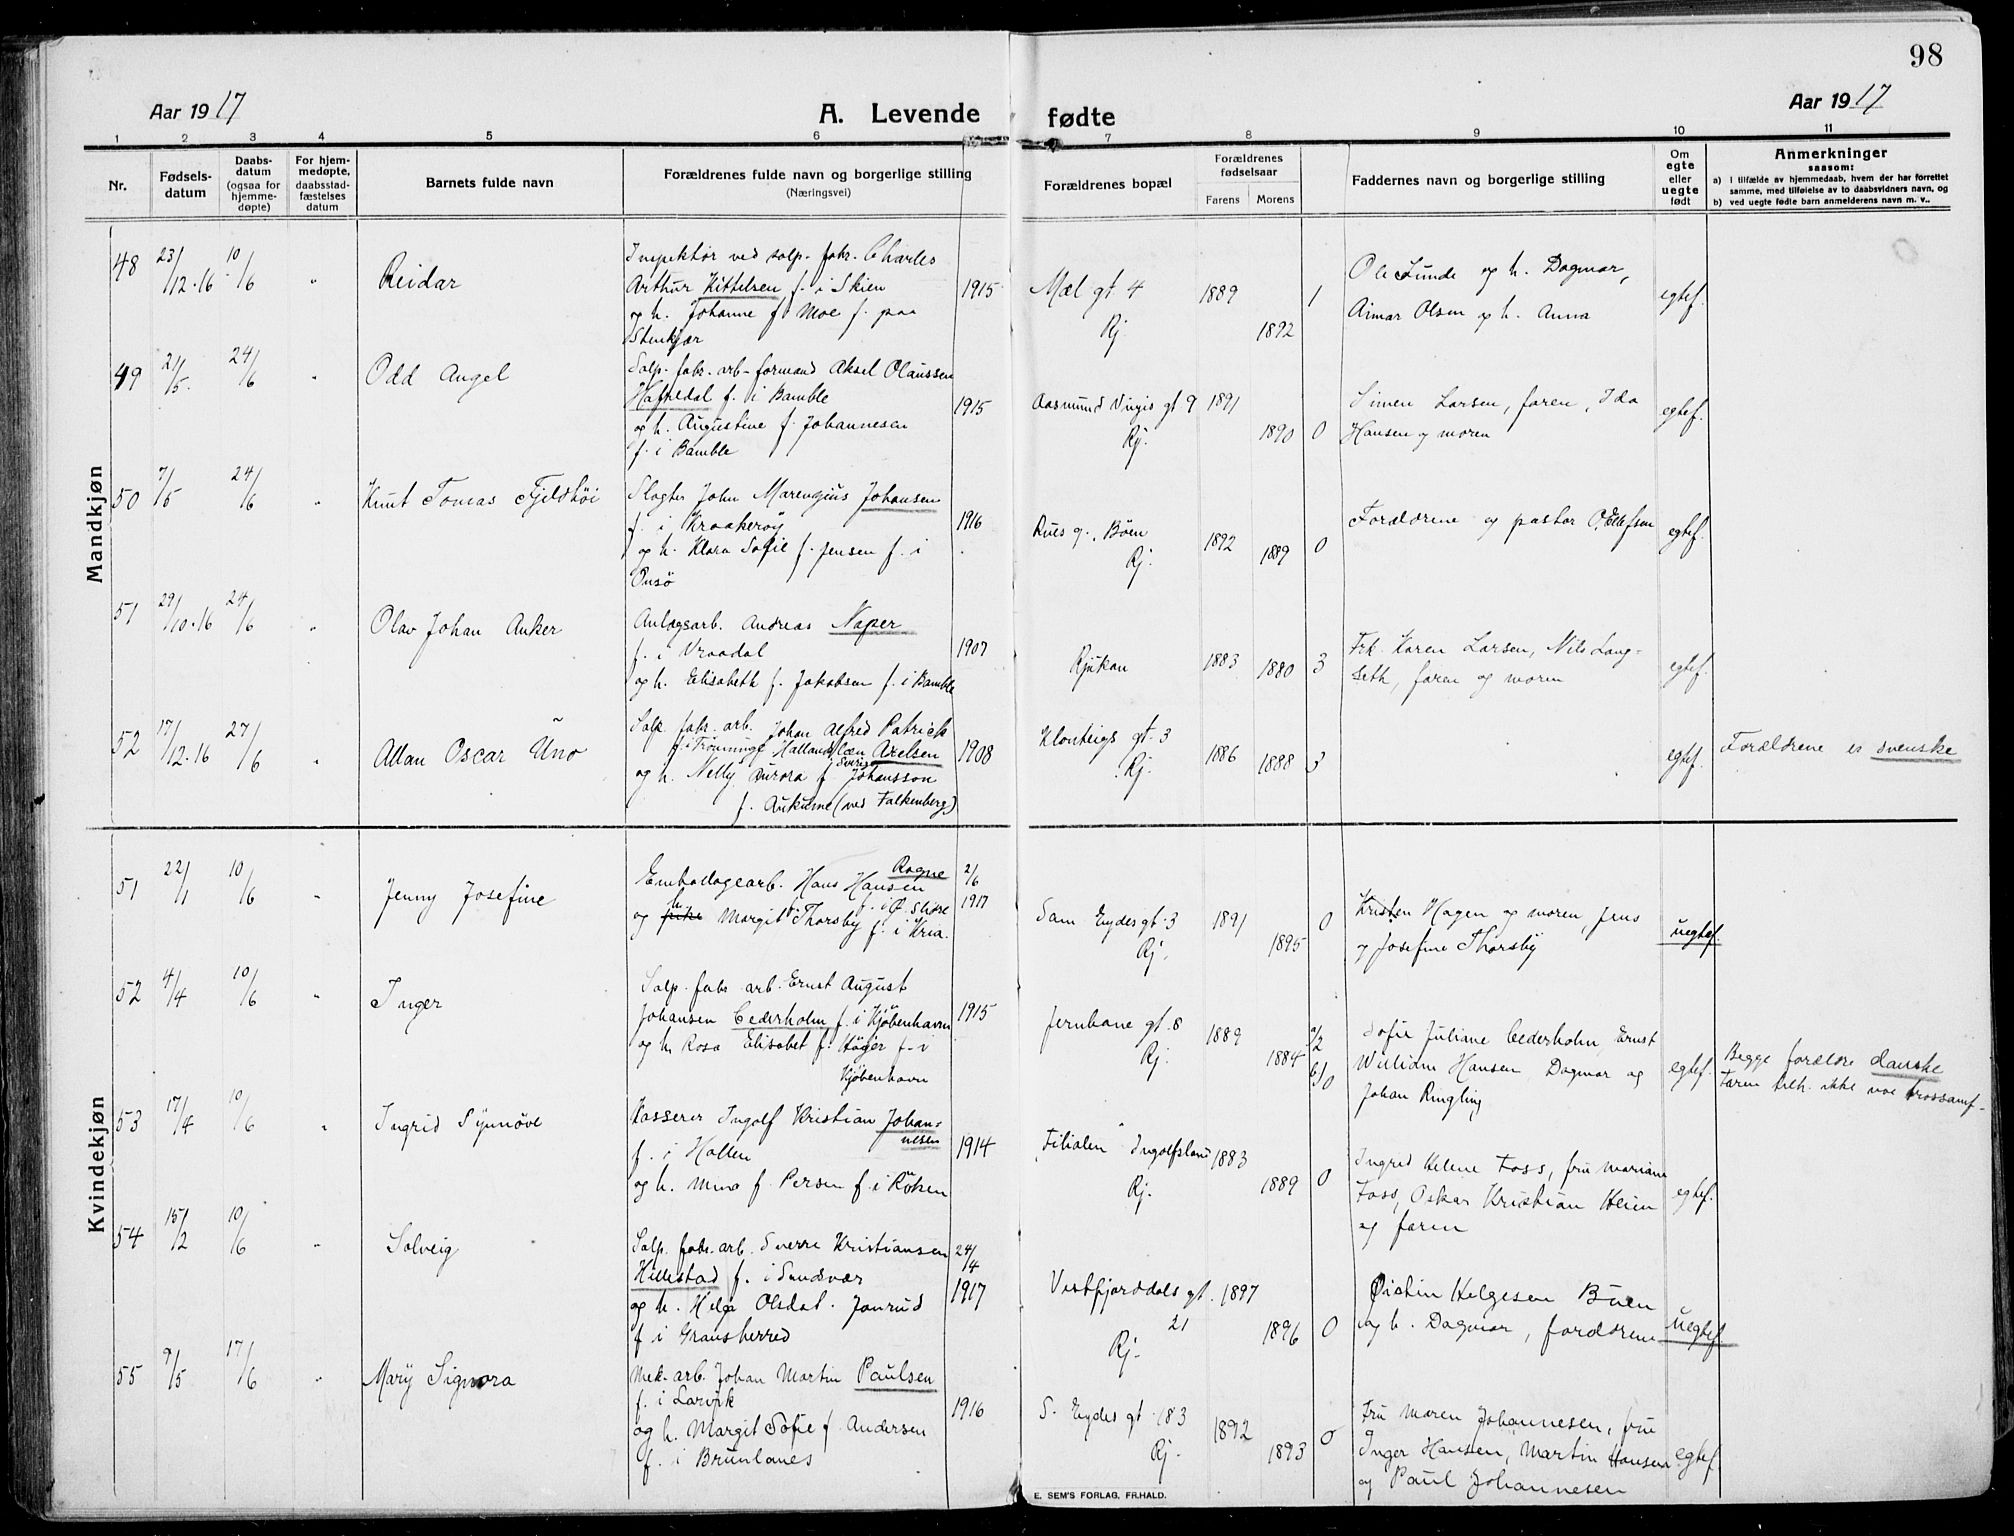 98
Aar 1917
A. Levende fødte
Aar 1917
1 2 3 4 5 6 7 8 9 10 11
Nr.
Fødsels-
datum
Daabs-
datum
(ogsaa for
hjemme-
døpte)
For hjem-
medøpte,
daabsstad-
fæstelses
datum
Barnets fulde navn
Forældrenes fulde navn og borgerlige stilling
(Næringsvei)
Forældrenes bopæl
Forældrenes
fødselsaar
Farens Morens
Faddernes navn og borgerlige stilling
Om
egte
eller
uegte
født
Anmerkninger
saasom:
a) i tilfælde av hjemmedaab, hvem der har forrettet
samme, med tilføielse av to daabsvidners navn, og
b) ved uegte fødte barn anmelderens navn m. v..
Mandkjøn
48 23/12-16 10/6 " Reidar
Inspektør ved salp. fabr. Charles
Arthur Kittelsen f. i Skien
og h. Johanne f. Moe f. paa
Stenkjær
1915
Mæl gt 4
Rj.
1889 1892 1
Ole Lunde og h. Dagmar,
Aimar Olsen og h. Anna
egtef.
49 21/5. 24/6 " Odd Angel
Salp. fabr. arb-formand Aksel Olaussen
Hafredal f. i Bamble
og h. Augustine f. Johannesen
f. i Bamble
1915
Aasmund Vinjes gt 9
Rj.
1891 1890 0
Simen Larsen, faren, Ida
Hansen og moren
egtef.
50 7/5 24/6 " Knut Tomas Fjeldhöi
Slagter John Marengius Johansen
f. i Kraakeröy
og h. Klara Sofie f. Jensen f. i
Onsö
1916
Rues g., Böen
Rj.
1892 1889 0
Forældrene og pastor O. Ellefsen
egtef.
51 29/10-16 24/6 " Olav Johan Anker
Anlægsarb. Andreas Naper
f. i Vraadal
og h. Elisabeth f. Jakobsen f. i Bamble
1907
Rjukan
1883 1880 3
Frk. Karen Larsen, Nils Lang-
seth, faren og moren
egtef.
52 17/12-16 27/6 " Allan Oscar Uno
Salp. fabr. arb. Johan Alfred Patrick
f. i Trönninge Hallands læn Axelsen
Sverige
og h. Nelly Aurora f. Johansson
f. (ved Falkenberg)
1908
Kloumans gt. 3
Rj.
1886 1888 3
egtef.
Forældrene er svenske
Kvindekjøn
51 22/1 10/6 " Jenny Josefine
Rogne
Emballagearb. Hans Hansen
f. i Ø. Slidre
og h. Margit Thorsby f. i Kria.
2/6
1917
Sam Eydes gt. 3
Rj.
1891 1895 0
Kristen Hagen og moren, Jens
og Josefine Thorsby
uegtef.
52 4/4 10/6 " Inger
Salp. fabr. arb. Ernst August
Johansen Cederholm f. i Kjöbenhavn
og h. Rosa Elisabet f. Höyer f. i
Kjöbenhavn
1915
Jernbane gt. 8
Rj.
1889 1884
Sofie Juliane Cederholm, Ernst
William Hansen, Dagmar og
Johan Ringling
egtef.
Begge forældre danske
Faren tilh. ikke noe trossamf-
53 17/4 10/6 " Ingrid Synnöve
Kasserer Ingolf Kristian Johan-
nesen
f. i Hollen
og h. Mina f. Persen f. i Röken
1914
"Filialen" Ingolfsland
Rj.
1883 1889 0
Ingrid Helene Foss, fru Mariane
Foss, Oskar Kristian Heien
og faren
egtef.
54 15/2 10/6 " Solveig
Salp. fabr. arb. Sverre Kristiansen
Hillestad f. i Sandsvær
og h. Helga Olsdat. Jonrud
f. i Gransherred
24/4
1917
Vestfjorddals gt.
21
Rj.
1897 1896 0
Øistin Helgesen Böen
og h. Dagmar, forældrene
uegtef.
55 9/5 17/6 " Mary Signora
Mek. arb. Johan Martin Paulsen
f. i Larvik
og h. Margit Sofie f. Andersen
f. i Brunlanes
1916
S. Eydes gt. 183
Rj.
1892 1893 0
Fru Maren Johannesen, fru
Inger Hansen, Martin Hansen
og Paul Johannesen
egtef.
E. SEM'S FORLAG, FR.HALD.